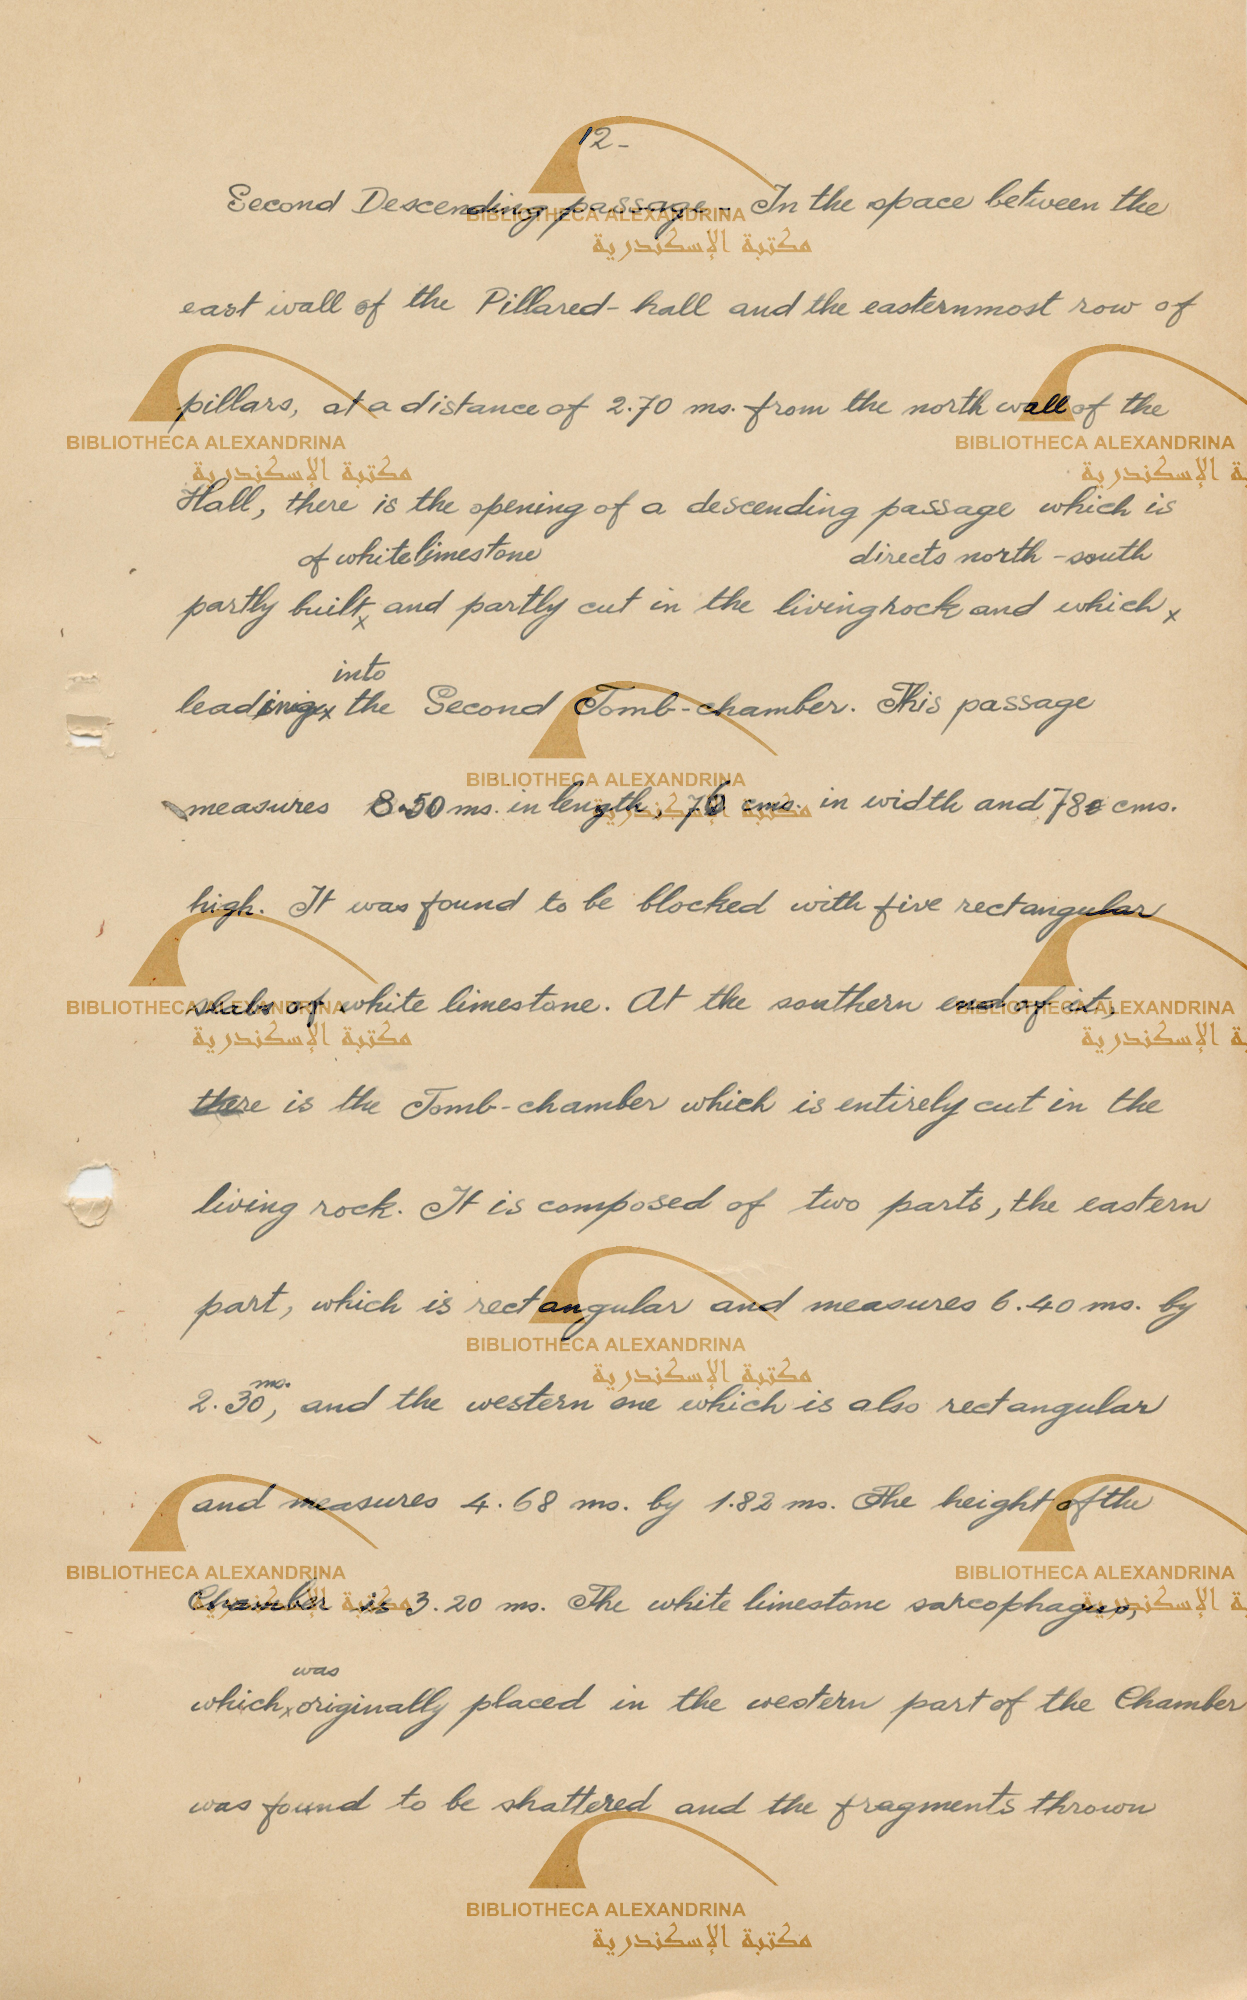 12-
Second Descending passage - In the space between the
east wall of the Pillared-hall and the easternmost row of
pillars, at a distance of 2.70 ms. from the north wall of the
Hall, there is the opening of a descending passage which is
of white limestone directs north-south
partly built x and partly cut in the living rock and which x
into
leading x the Second Tomb-chamber. This passage
measures 8.50 ms. in length, cms. in width and 78 cms.
high. It was found to be blocked with five rectangular
slabs of white limestone. At the southern end of it,
there is the Tomb-chamber which is entirely cut in the
living rock. It is composed of two parts, the eastern
part, which is rectangular and measures 6.40 ms. by
ms.
2.30, and the western one which is also rectangular
and measures 4.68 ms. by 1.82 ms. The height of the
Chamber is 3.20 ms. The white limestone sarcophagus,
was
which x originally placed in the western part of the Chamber
was found to be shattered and the fragments thrown
BIBLIOTHECA ALEXANDRINA
مكتبة الإسكندرية